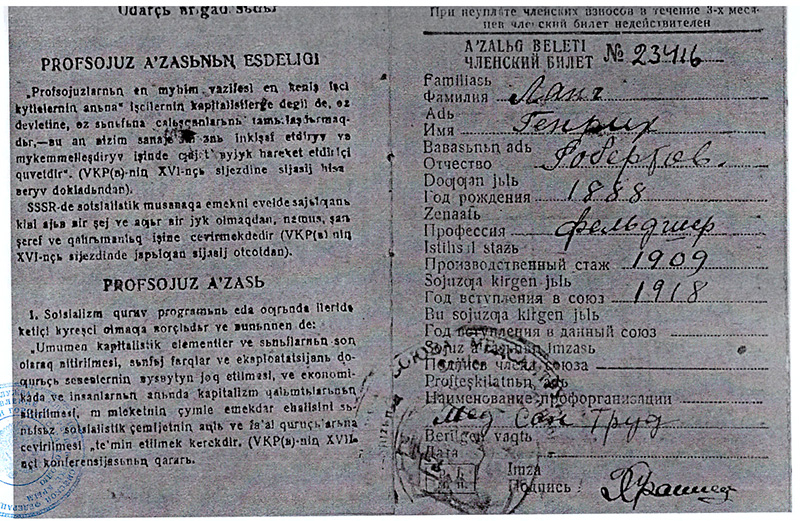 Udarçь Brigad
PROFSOJUZ A'ZASЬNЬꞐ ESDELIGI
„Profsojuzlarnьꞑ en myhim vazifesi en keniş işci
kytlelerniꞑ anьna" işcilerniꞑ kapitalistlerge degil de, ɵz
devletine, ɵz sьnьfьna calьşqanlarьnь
dьr,—bu an bizim sanaje inkişaf etdiryv ve
mykemmelleşdiryv işinde byjyk hareket etdirici
quvetdir". (VKP(в)-niꞑ XVI-nçь sijezdine sijasij hisa
beryv dokladьndan).
SSSR-de sotsialistik musabaqa emekni evelde sajьlqanь
kibi ajьв вir şej ve aqьr вir jyk olmaqdan, namus, şan
şeref ve qahramanlьq işine cevirmekdedir (VKP(в)-niꞑ
XVI-nçь sijezdinde japьlqan sijasij otcotdan).
PROFSOJUZ A'ZASЬ
1. Sotsializm quruv programьnь eda oqrunda ileride
ketiçi kyreşci olmaqa borçludьr ve bununnen de:
„Umumen kapitalistik elementler ve sьnьflarnьꞑ son
olaraq bitirilmesi, sьnfij farqlar ve eksploatatsijanь do-
qurьçь sebeplerniꞑ bysbytyn joq etilmesi, ve ekonomi-
kada ve insanlarnьꞑ aꞑьnda kapitalizm qalьntьlarьnьꞑ
bitirilmesi, memleketniꞑ çymle emekdar ehalisini sь-
nьfsьz sotsialistik çemijetniꞑ aqlь ve fa'al quruçьlarьna
cevirilmesi „te'min etilmek kerekdir. (VKP(в)-niꞑ XVII-
nçi konferensijasьnьꞑ qararь.
При неуплате членских взносов в течение 3-х меся-
цев членский билет недействителен
A'ZALЬQ BELETI
ЧЛЕНСКИЙ БИЛЕТ № 23416
Familiasь
Фамилия Ланг
Adь
Имя Генрих
Babasьnьꞑ adь
Отчество Робертов.
Doqqan jьlь
Год рождения 1888
Zenaatь
Профессия фельдшер
Istihsal stažь
Производственный стаж 1909
Sojuzqa kirgen jьlь
Год вступления в союз 1918
Bu sojuzqa kirgen jьlь
Год вступления в данный союз
Sojuz a'zasьnьꞑ imzasь
Подпись члена союза
Profteşkilatnьꞑ adь
Наименование профорганизации
Мед Сан Труд
Berilgen vaqtь
Дата
Imza
Подпись: